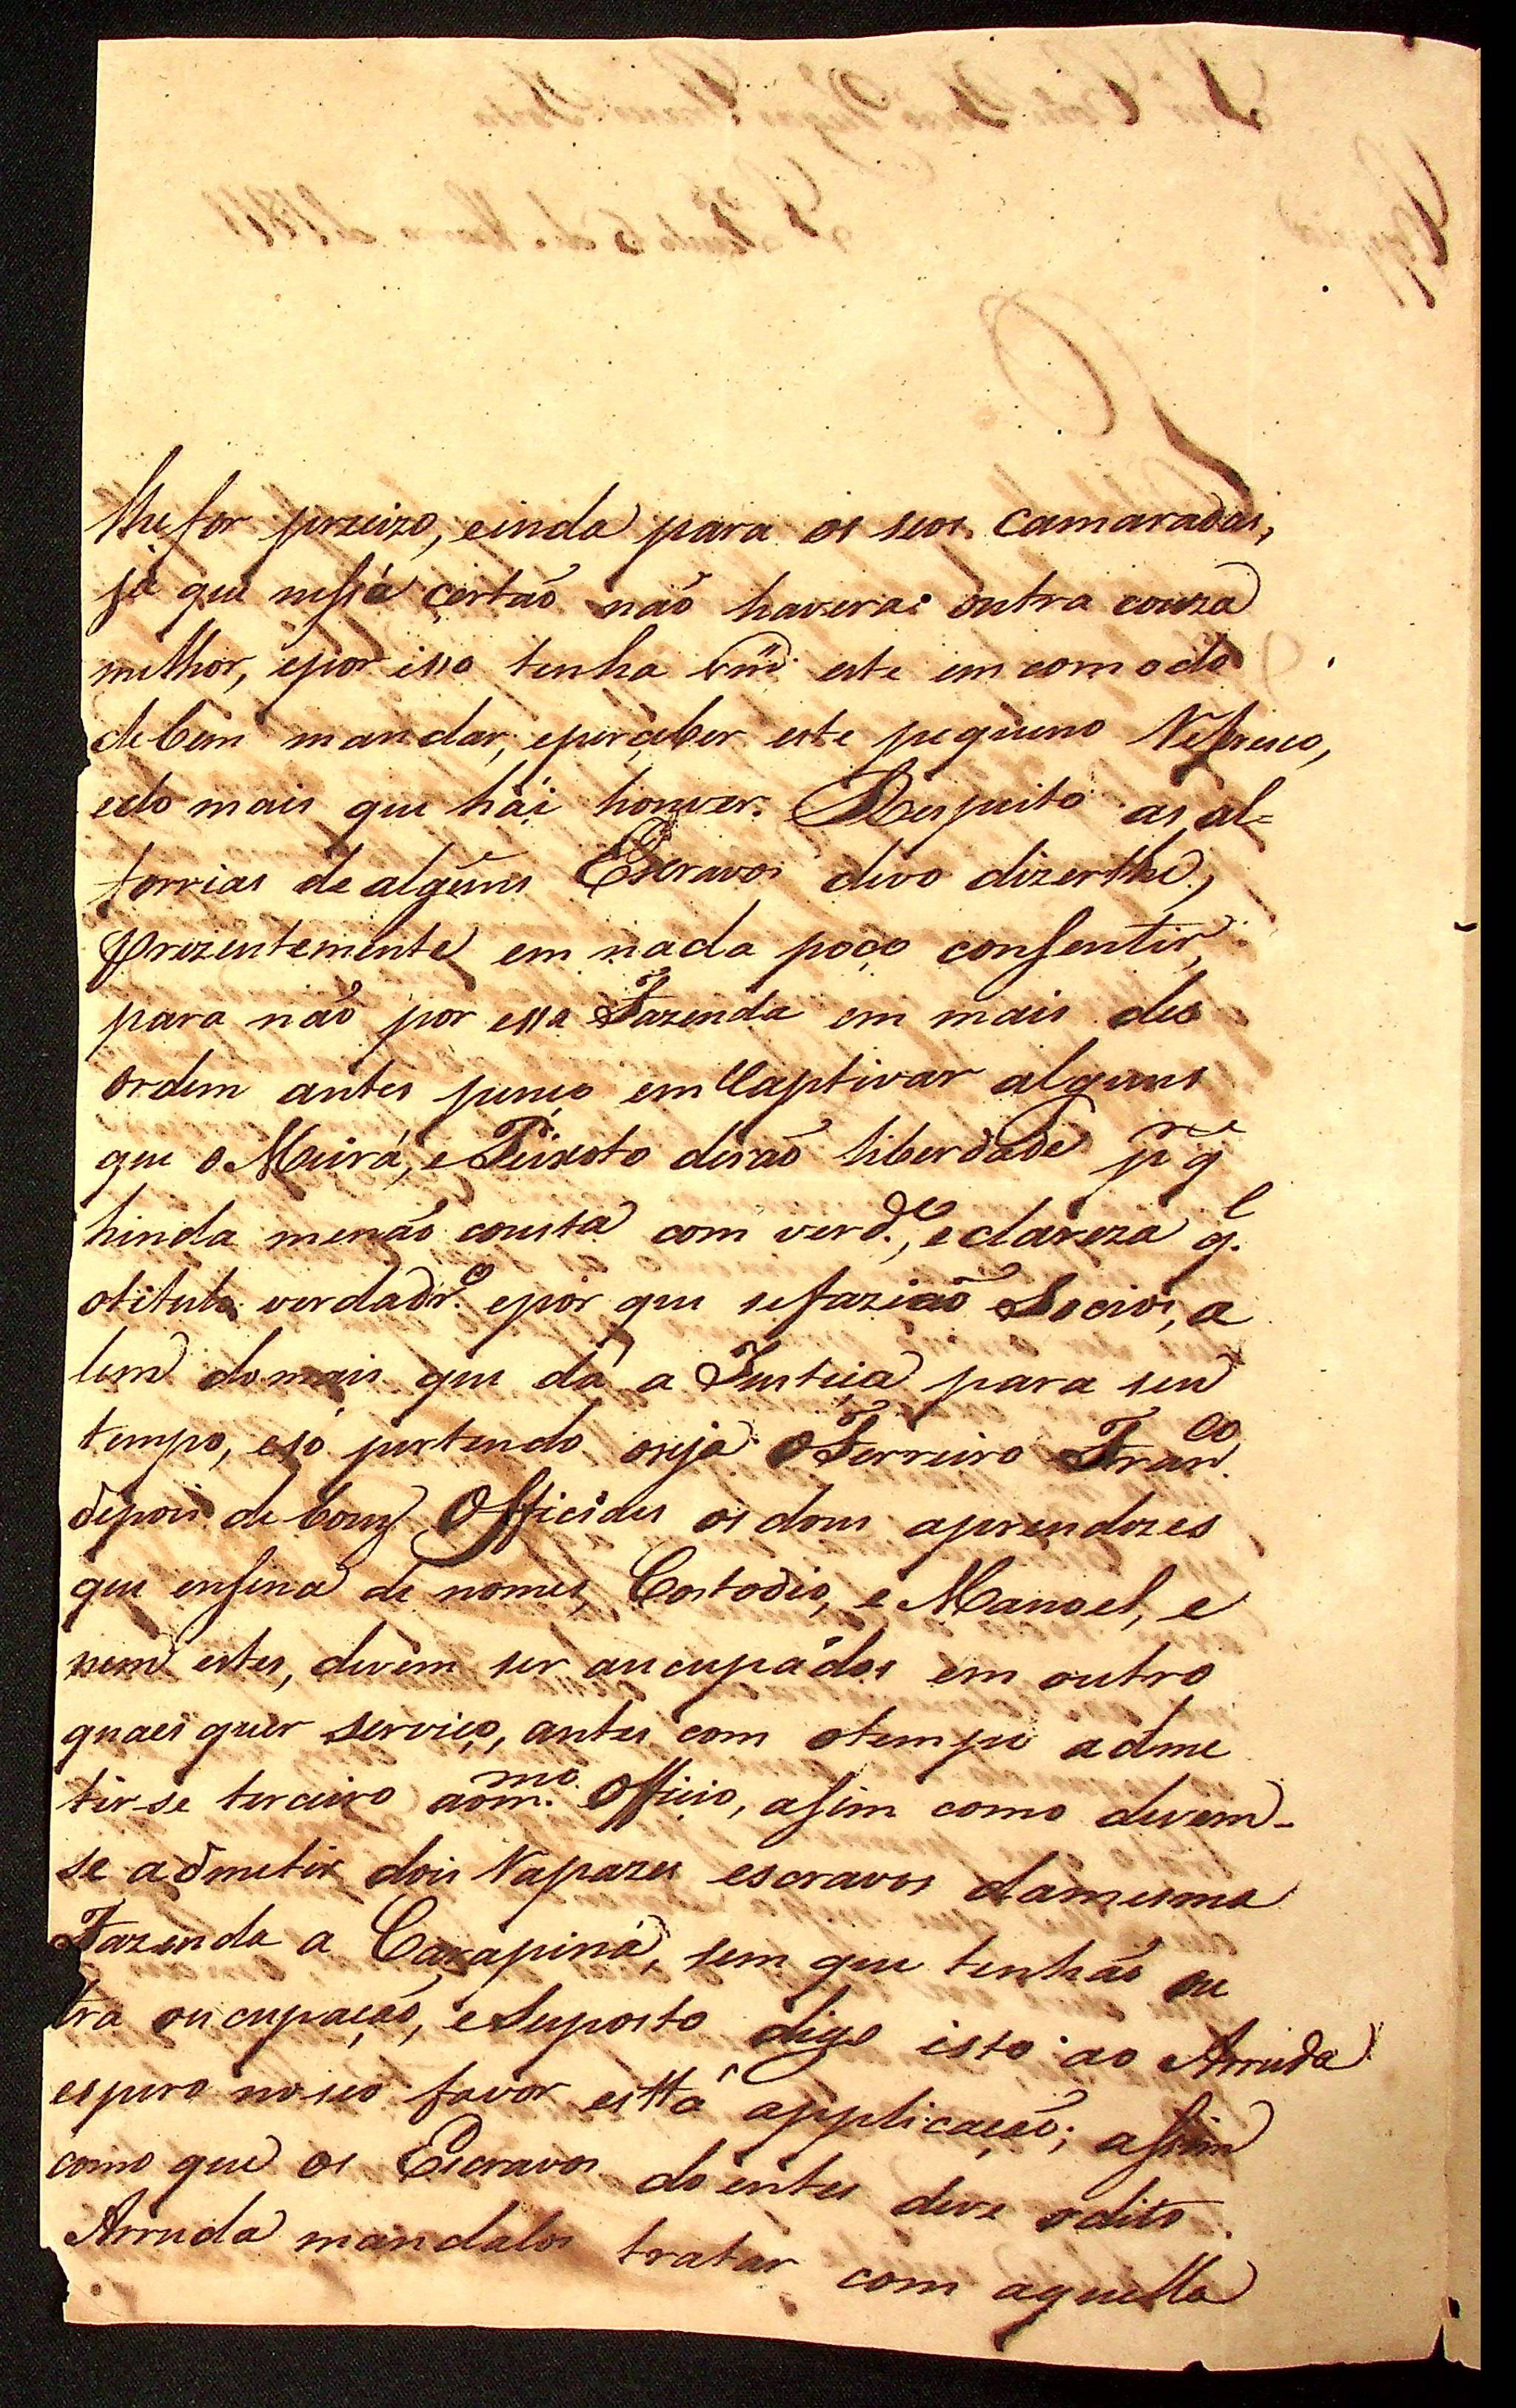 lhe for precizo, einda para os seos camaradas,
já que nessa certaõ naõ haverai outra couza
milhor, epor isso tenha vm.ce este emcomodo
debem mandar, eperceber este pequeno Refresco,
edo mais que hái houver. Respeito as al=
forrias de algũns Escravos devo dizerlhe,
prezentemente em nada poço consentir,
para naõ por essa Fazenda em mais des
ordem antes penço em Captivar alguns
que o Meirá, e Peixoto deraõ liberdade p.r q.e
hinda menaõ consta com verd.e, e clareza q.l
otitulo verdadr.o epor que sefaziaõ Socios, a
lem domais que dá a Justiça para seu
tempo, esó pertendo seja o Ferreiro Fran.co
depois de bons Officiaes os dous aprendizes
que ensina de nomes, Costodio, e Manoel, e
nem estes, devem ser aucupádos em outro
quaes quer serviço, antes com otempo adme
tir-se terceiro aom.mo Officio, asim como devem-
se admetir dois Rapazes escravos damesma
Fazenda a Carapiná, sem que tenhaõ ou
tra oucupaçaõ, eSuposto digo isto ao Arruda
espero noseo favor esttá applicaçaõ; assim
como que os Escravos doentes deve odito
Arruda mandalos tratar com aquella